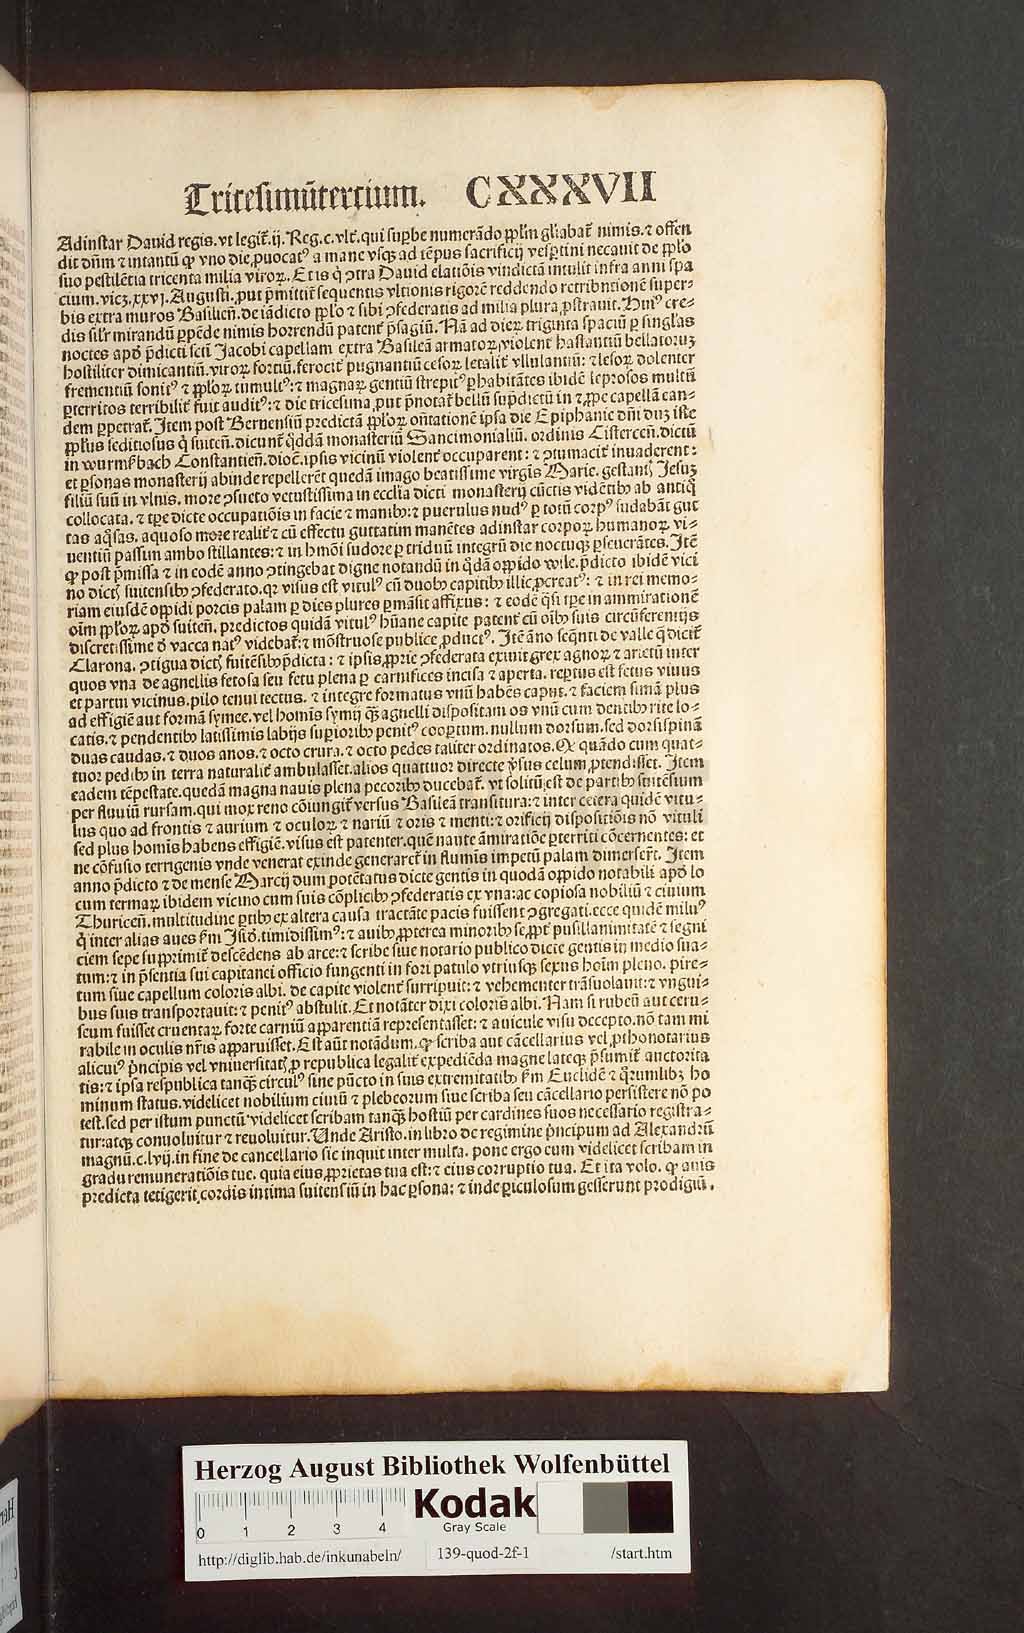 Tricesimūtercium. CXXXVII
Adinstar Dauid regis. vt legit᷑. ij. Reg. c. vlt᷑. qui suꝑbe numerādo ppl'm gl'iabat᷑ nimis. ⁊ offen
dit dn̄m ⁊ intantū ꝙ vno die ꝓuocatꝰ a mane vsqꝫ ad tēpus sacrificij vesꝑtini necauit de ppl'o
suo pestilētia tricenta milia viroꝝ. Et is q̇ ꝯtra Dauid elatiōis vindictā intulit infra anni spa
cium. vicꝫ. xxvj. Augusti. put p̄mittit᷑ sequentis vltionis rigorē reddendo retribntionē super-
bis extra muros Basilien̄. de iādicto ppl'o ⁊ sibi ꝯfederatis ad milia plura ꝓstrauit. Huiꝰ cre-
dis sil'r mirandū ꝑpēde nimis horrendū patent᷑ p̄sagiū. Nā ad dieꝝ triginta spaciū ꝑ singl'as
noctes apd̄ p̄dicti sc̄ti Jacobi capellam extra Basileā armatoꝝ violent᷑ hastantiū bellatoruꝫ
hostiliter dimicantiū. viroꝝ fortiū. ferocit᷑ pugnantiū cesoꝝ letalit᷑ vllulantiū: ⁊ lesoꝝ dolenter
frementiū sonitꝰ ⁊ ppl'oꝝ tumultꝰ: ⁊ magnaꝝ gentiū strepitꝰ ꝑhabitātes ibidē leprosos multū
ꝑterritos terribilit᷑ fuit auditꝰ: ⁊ die tricesima put p̄notat᷑ bellū sup̄dictū in ⁊ ꝓpe capellā ean-
dem ꝑpetrat᷑. Item post Bernensiū predictā ppl'oꝝ on̄tationē ipsa die Epiphanie dn̄i duꝫ iste
ppl'us seditiosus q̇ suiten̄. dicunt᷑ q̇ddā monasteriū Sancimonialiū. ordinis Cistercen̄. dictū
in wurmſ̄bach Constantien̄. dioc̄. ipsis vicinū violent᷑ occuparent: ⁊ ꝯtumacit᷑ inuaderent:
et ꝑsonas monasterij abinde repellerēt quedā imago beatissime virgīs Marie. gestantꝭ Jesuꝫ
filiū suū in vlnis. more ꝯsueto vetustissima in eccl'ia dicti monasterij cūctis vidētibꝫ ab antiq̇
collocata. ⁊ tp̄e dicte occupatiōis in facie ⁊ manibꝫ: ⁊ puerulus nudꝰ ꝑ totū corpꝰ sudabāt gut
tas aq̇sas. aquoso more realit᷑ ⁊ cū effectu guttatim manētes adinstar corpoꝝ humanoꝝ vi-
uentiū passim ambo stillantes: ⁊ in hmōi sudore ꝑ triduū integrū die noctuqꝫ ꝑseuerātes. Itē
ꝙ post p̄missa ⁊ in eodē anno ꝯtingebat digne notandū in q̇dā oppido wile. p̄dicto ibidē vici
no dictꝭ suitensibꝫ ꝯfederato. qꝛ visus est vitulꝰ cū duobꝫ capitibꝫ illic ꝓcreatꝰ: ⁊ in rei memo-
riam eiusdē oppidi porcis palam ꝑ dies plures ꝑmāsit affixus: ⁊ eodē q̇si tp̄e in ammirationē
oīm ppl'oꝝ apd̄ suiten̄. predictos quidā vitulꝰ hūane capite patent᷑ cū oībꝫ suis circūferentijs
discretissime d̄ vacca natꝰ videbat᷑: ⁊ mōstruose publice ꝓductꝰ. Itē āno seq̄nti de valle q̇ dicit᷑
Clarona. ꝯtigua dictꝭ suitēsibꝫ p̄dicta: ⁊ ipsis ꝓprie ꝯfederata exiuit grex agnoꝝ ⁊ arietū inter
quos vna de agnellis fetosa seu fetu plena ꝑ carnifices incisa ⁊ aperta. reꝑtus est fetus viuus
et partui vicinus. pilo tenui tectus. ⁊ integre formatus vnū habēs caput. ⁊ faciem simā plus
ad effigiē aut formā symee. vel homīs symij qꝫ̄ agnelli dispositam os vnū cum dentibꝫ rite lo-
catis. ⁊ pendentibꝫ latissimis labijs suꝑioribꝫ penitꝰ cooꝑtum. nullum dorsum. sed dorsispinā
duas caudas. ⁊ duos anos. ⁊ octo crura. ⁊ octo pedes taliter ordinatos. Qꝫ quādo cum quat-
tuor pedibꝫ in terra naturalit᷑ ambulasset. alios quattuor directe v̄sus celum ꝓtendisset. Item
eadem tēpestate. quedā magna nauis plena pecoribꝫ ducebat᷑. vt solitū est de partibꝫ suitēsium
per fluuiū rursam. qui mox reno cōiungit᷑ versus Basileā transitura: ⁊ inter cetera quidē vitu-
lus quo ad frontis ⁊ aurium ⁊ oculoꝝ ⁊ nariū ⁊ oris ⁊ menti: ⁊ orificij dispositiōis nō vituli
sed plus homīs habens effigiē. visus est patenter. quē naute āmiratiōe ꝑterriti cōcernentes: et
ne cōfusio terrigenis vnde venerat exinde generaret᷑ in flumīs impetū palam dimerser̄t. Item
anno p̄dicto ⁊ de mense Marcij dum potētatus dicte gentis in quodā oppido notabili apd̄ lo
cum termaꝝ ibidem vicino cum suis cōplicibꝫ ꝯfederatis ex vna: ac copiosa nobiliū ⁊ ciuium
Thuricen̄. multitudine ꝑtibꝫ ex altera causa tractāte pacis fuissent ꝯgregati. ecce quidē miluꝰ
q̇ inter alias aues ẜm Jsid̄. timidissimꝰ: ⁊ auibꝫ ꝓpterea minoribꝫ se ꝓpt᷑ pusillanimitatē ⁊ segni
ciem sepe supprimit᷑ descēdens ab arce: ⁊ scribe siue notario publico dicte gentis in medio sua-
tum: ⁊ in p̄sentia sui capitanei officio fungenti in fori patulo vtriusqꝫ sexus hoīm pleno. pire-
tum siue capellum coloris albi. de capite violent᷑ surripuit: ⁊ vehementer trāsuolauit: ⁊ vngui-
bus suis transportauit: ⁊ penitꝰ abstulit. Et notāter dixi coloris albi. Nam si rubeū aut ceru-
seum fuisset cruentaꝝ forte carniū apparentiā representasset: ⁊ auicule visu decepto. nō tam mi
rabile in oculis nr̄is apparuisset. Est aūt notādum. ꝙ scriba aut cācellarius vel ꝓthonotarius
alicuiꝰ p̄ncipis vel vniuersitatꝭ ꝓ republica legalit᷑ expediēda magne lateqꝫ p̄sumit᷑ auctorita
tis: ⁊ ipsa respublica tanqꝫ̄ circulꝰ sine pūcto in suis extremitatibꝫ ẜm Euclidē ⁊ q̇rumlibꝫ ho
minum status. videlicet nobilium ciuiū ⁊ plebeorum siue scriba seu cācellario persistere nō po
test. sed per istum punctū videlicet scribam tanqꝫ̄ hostiū per cardines suos necessario registra-
tur: atqꝫ conuoluitur ⁊ reuoluitur. Unde Aristo. in libro de regimine p̄ncipum ad Alexandrū
magnū. c. lvij. in fine de cancellario sic inquit inter multa. pone ergo eum videlicet scribam in
gradu remuneratiōis tue. quia eius ꝓprietas tua est: ⁊ eius corruptio tua. Et ita volo. ꝙ auis
predicta tetigerit cordis intima suitensiū in hac ꝑsona: ⁊ inde ꝑiculosum gesserunt prodigiū.
Herzog August Bibliothek Wolfenbüttel
0 1 2 3 4
Kodak
Gray Scale
http://diglib.hab.de/inkunabeln/ 139-quod-2f-1 /start.htm